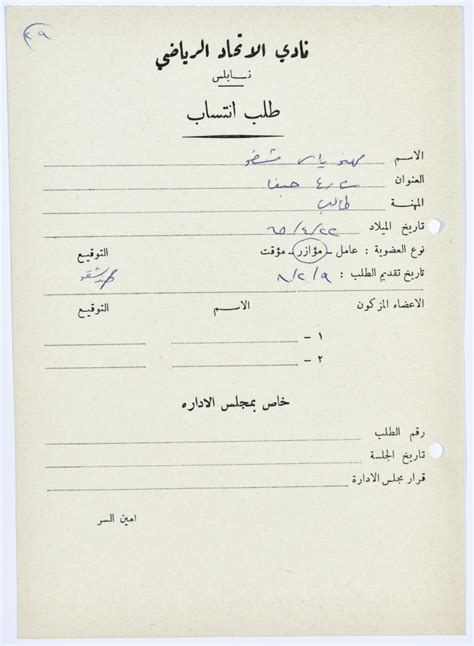 ٢٩
نادي الاتحاد الرياضي
نابلس
طلب انتساب
الاسم
العنوان شارع حيفا
المهنة طالب
تاريخ الميلاد ٦٥/٤/٢٢
نوع العضوية : عامل - مؤازر - مؤقت التوقيع
تاريخ تقديم الطلب : ٨/٢/٩
الاعضاء المزكون الاسم التوقيع
١ -
٢ -
خاص بمجلس الاداره
رقم الطلب
تاريخ الجلسة
قرار مجلس الادارة
امين السر